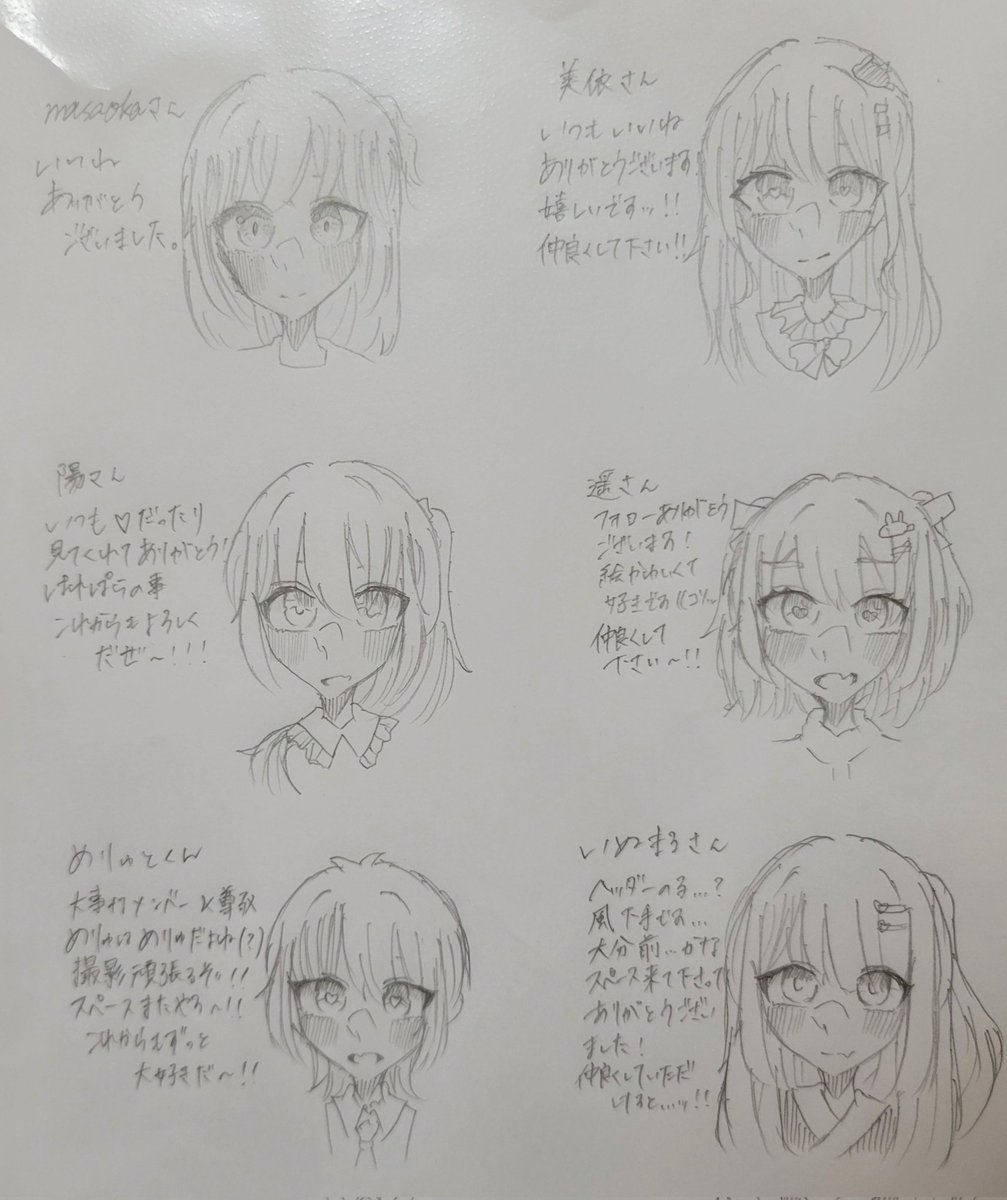 masaokaさん
いいね
ありがとう
ございました。
美依さん
いつもいいね
ありがとうございます!
嬉しいですッ!!
仲良くして下さい!!
陽さん
いつも♡だったり
見てくれてありがとう!
の事
これからもよろしく
だぜ〜!!!
遥さん
フォローありがとう
ございます!
絵かわいくて
好きです
仲良くして
下さい〜!!
めりゅとくん
大事なメンバー&尊敬
めりゅはめりゅだよね(?)
撮影頑張るぞ!!
スペースまたやろ〜!!
これからもずっと
大好きだ〜!!
いぬまろさん
ヘッダーのる…?
風下手です…
大分前…かな
スペース来て下さって
ありがとうござい
ました!
仲良くしていただ
けると…ッ!!